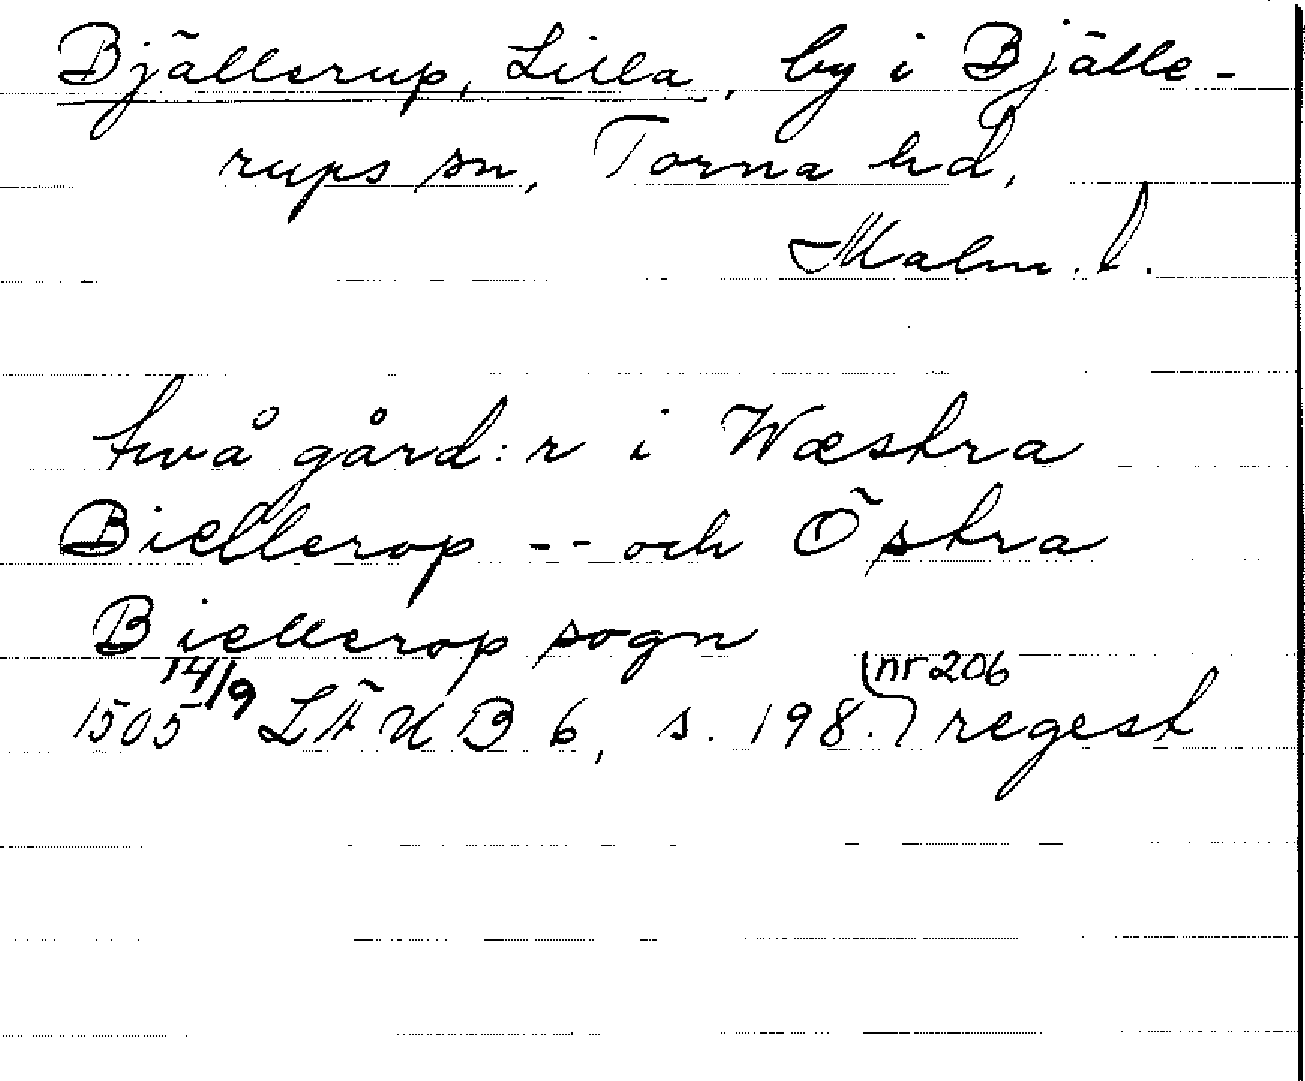 Bjällerup, Lilla, by i Bjälle-
rups sn, Torna hd,
Malm. l.
twå gård:r i Wæstra
Biellerop -- och Östra
Biellerop sogn
1505 14/9 LÄUB 6, s. 198. (nr 206) regest